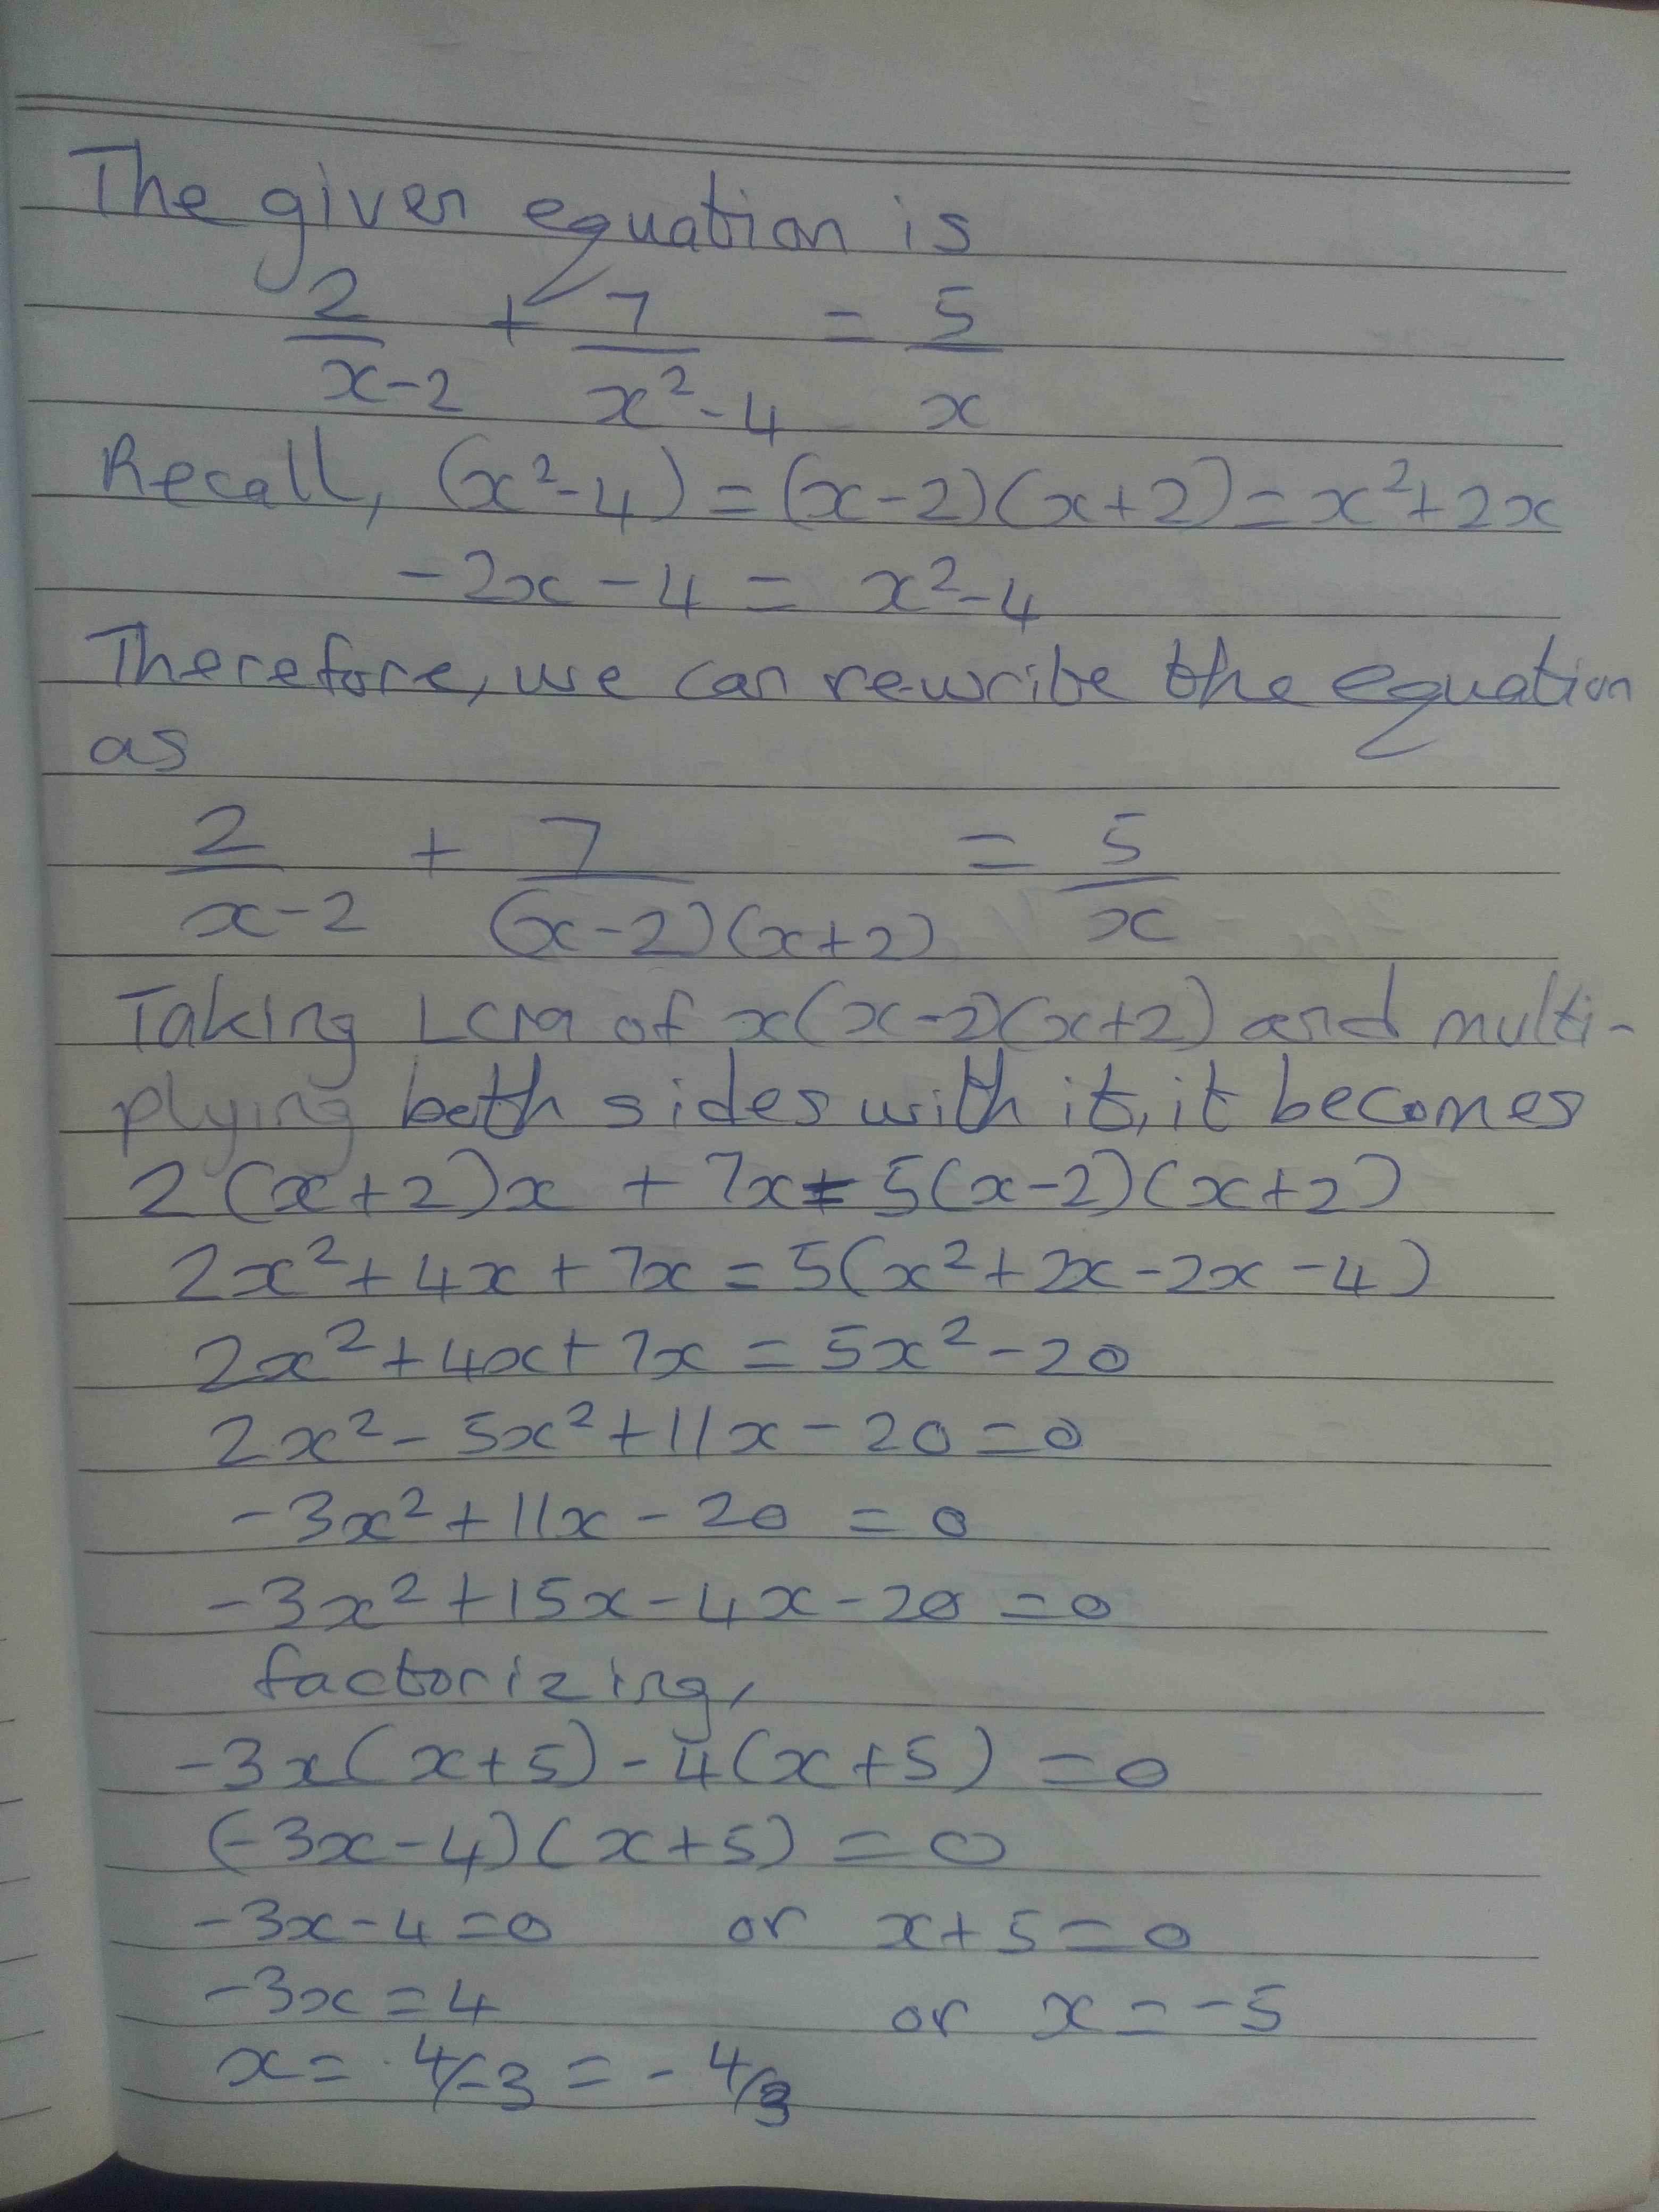 The given equation is
2/(x-2) + 7/(x²-4) = 5/x
Recall, (x²-4) = (x-2)(x+2) = x²+2x
-2x - 4 = x²-4
Therefore, we can rewrite the equation
as
2/(x-2) + 7/((x-2)(x+2)) = 5/x
Taking LCM of x(x-2)(x+2) and multi-
plying both sides with it, it becomes
2(x+2)x + 7x = 5(x-2)(x+2)
2x² + 4x + 7x = 5(x²+2x-2x-4)
2x² + 4x + 7x = 5x² - 20
2x² - 5x² + 11x - 20 = 0
-3x² + 11x - 20 = 0
-3x² + 15x - 4x - 20 = 0
factorizing,
-3x(x+5) - 4(x+5) = 0
(-3x-4)(x+5) = 0
-3x-4=0 or x+5=0
-3x=4 or x=-5
x = 4/-3 = -4/3